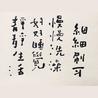 細細刷牙
慢慢洗澡
好好睡覺
生活